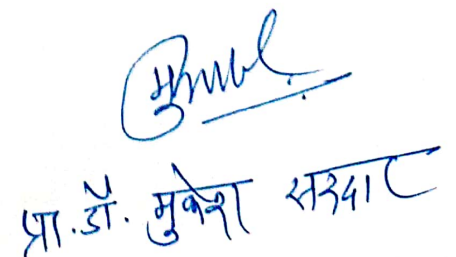 प्रा.डॉ. मुकेश सरदार